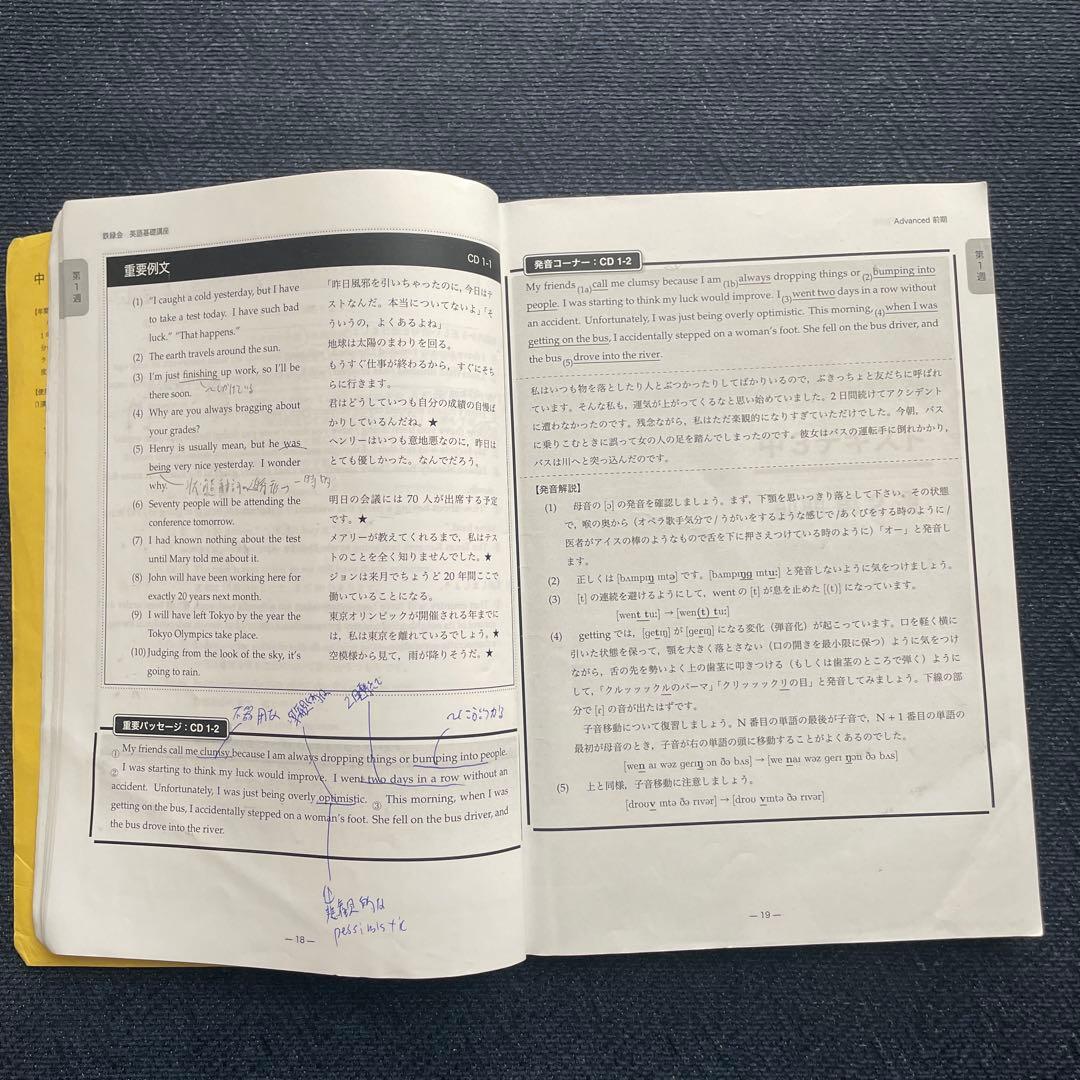 鉄緑会 英語基礎講座
第1週
重要例文 CD 1-1
(1) "I caught a cold yesterday, but I have
to take a test today. I have such bad
luck." "That happens."
(2) The earth travels around the sun.
(3) I'm just finishing up work, so I'll be
there soon.
(4) Why are you always bragging about
your grades?
(5) Henry is usually mean, but he was
being very nice yesterday. I wonder
why.
(6) Seventy people will be attending the
conference tomorrow.
(7) I had known nothing about the test
until Mary told me about it.
(8) John will have been working here for
exactly 20 years next month.
(9) I will have left Tokyo by the year the
Tokyo Olympics take place.
(10) Judging from the look of the sky, it's
going to rain.
「昨日風邪を引いちゃったのに,今日はテ
ストなんだ。本当についてないよ」「そ
ういうの,よくあるよね」
地球は太陽のまわりを回る。
もうすぐ仕事が終わるから,すぐにそち
らに行きます。
君はどうしていつも自分の成績の自慢ば
かりしているんだね。★
ヘンリーはいつも意地悪なのに,昨日は
とても優しかった。なんでだろう。
明日の会議には 70 人が出席する予定
です。★
メアリーが教えてくれるまで,私はテス
トのことを全く知りませんでした。★
ジョンは来月でちょうど 20 年間ここで
働いていることになる。
東京オリンピックが開催される年までに
は,私は東京を離れているでしょう。★
空模様から見て,雨が降りそうだ。★
不器用な
2日続けて
〜にぶつかる
重要パッセージ:CD 1-2
① My friends call me clumsy because I am always dropping things or bumping into people.
② I was starting to think my luck would improve. I went two days in a row without an
accident. Unfortunately, I was just being overly optimistic. ③ This morning, when I was
getting on the bus, I accidentally stepped on a woman's foot. She fell on the bus driver, and
the bus drove into the river.
悲観的な
pessimistic
— 18 —
Advanced 前期
第1週
発音コーナー:CD 1-2
My friends (1a)call me clumsy because I am (1b)always dropping things or (2)bumping into
people. I was starting to think my luck would improve. I (3)went two days in a row without
an accident. Unfortunately, I was just being overly optimistic. This morning, (4)when I was
getting on the bus, I accidentally stepped on a woman's foot. She fell on the bus driver, and
the bus (5)drove into the river.
私はいつも物を落としたり人とぶつかったりしてばかりいるので,ぶきっちょと友だちに呼ばれ
ています。そんな私も,運気が上がってくるなと思い始めていました。2 日間続けてアクシデント
に遭わなかったのです。残念ながら,私はただ楽観的になりすぎていただけでした。今朝,バス
に乗りこむときに誤って女の人の足を踏んでしまったのです。彼女はバスの運転手に倒れかかり,
バスは川へと突っ込んだのです。
【発音解説】
(1) 母音の [ɔ] の発音を確認しましょう。まず,下顎を思いっきり落として下さい。その状態
で,喉の奥から(オペラ歌手気分で/うがいをするような感じで/あくびをする時のように/
医者がアイスの棒のようなもので舌を下に押さえつけている時のように)「オー」と発音し
ます。
(2) 正しくは [bʌmpɪŋ ɪntə] です。[bʌmpɪŋg ɪntuː] と発音しないように気をつけましょう。
(3) [t] の連続を避けるようにして,went の [t] が息を止めた [(t)] になっています。
[went tuː] → [wen(t) tuː]
(4) getting では,[getɪŋ] が [geɾɪŋ] になる変化(弾音化)が起こっています。口を軽く横に
引いた状態を保って,顎を大きく落とさない(口の開きを最小限に保つ)ように気をつけ
ながら,舌の先を勢いよく上の歯茎に叩きつける(もしくは歯茎のところで弾く)ように
して,「クルッッックルのパーマ」「クリッッックリの目」と発音してみましょう。下線の部
分で [ɾ] の音が出たはずです。
子音移動について復習しましょう。N 番目の単語の最後が子音で,N + 1 番目の単語の
最初が母音のとき,子音が右の単語の頭に移動することがよくあるのでした。
[wen aɪ wəz geɾɪŋ ɔn ðə bʌs] → [we naɪ wəz geɾɪ ŋɔn ðə bʌs]
(5) 上と同様,子音移動に注意しましょう。
[droʊv ɪntə ðə rɪvər] → [droʊ vɪntə ðə rɪvər]
— 19 —